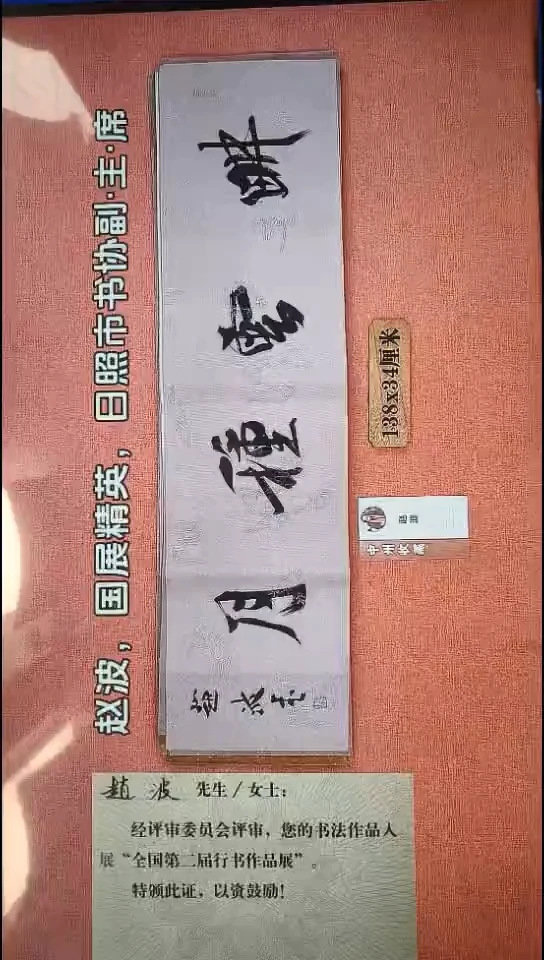 赵波，国展精英，日照市书协副·主·席
畊雲種月
趙波书
138x34厘米
中州收藏
趙波 先生/女士：
经评审委员会评审，您的书法作品入
展“全国第二届行书作品展”。
特颁此证，以资鼓励！